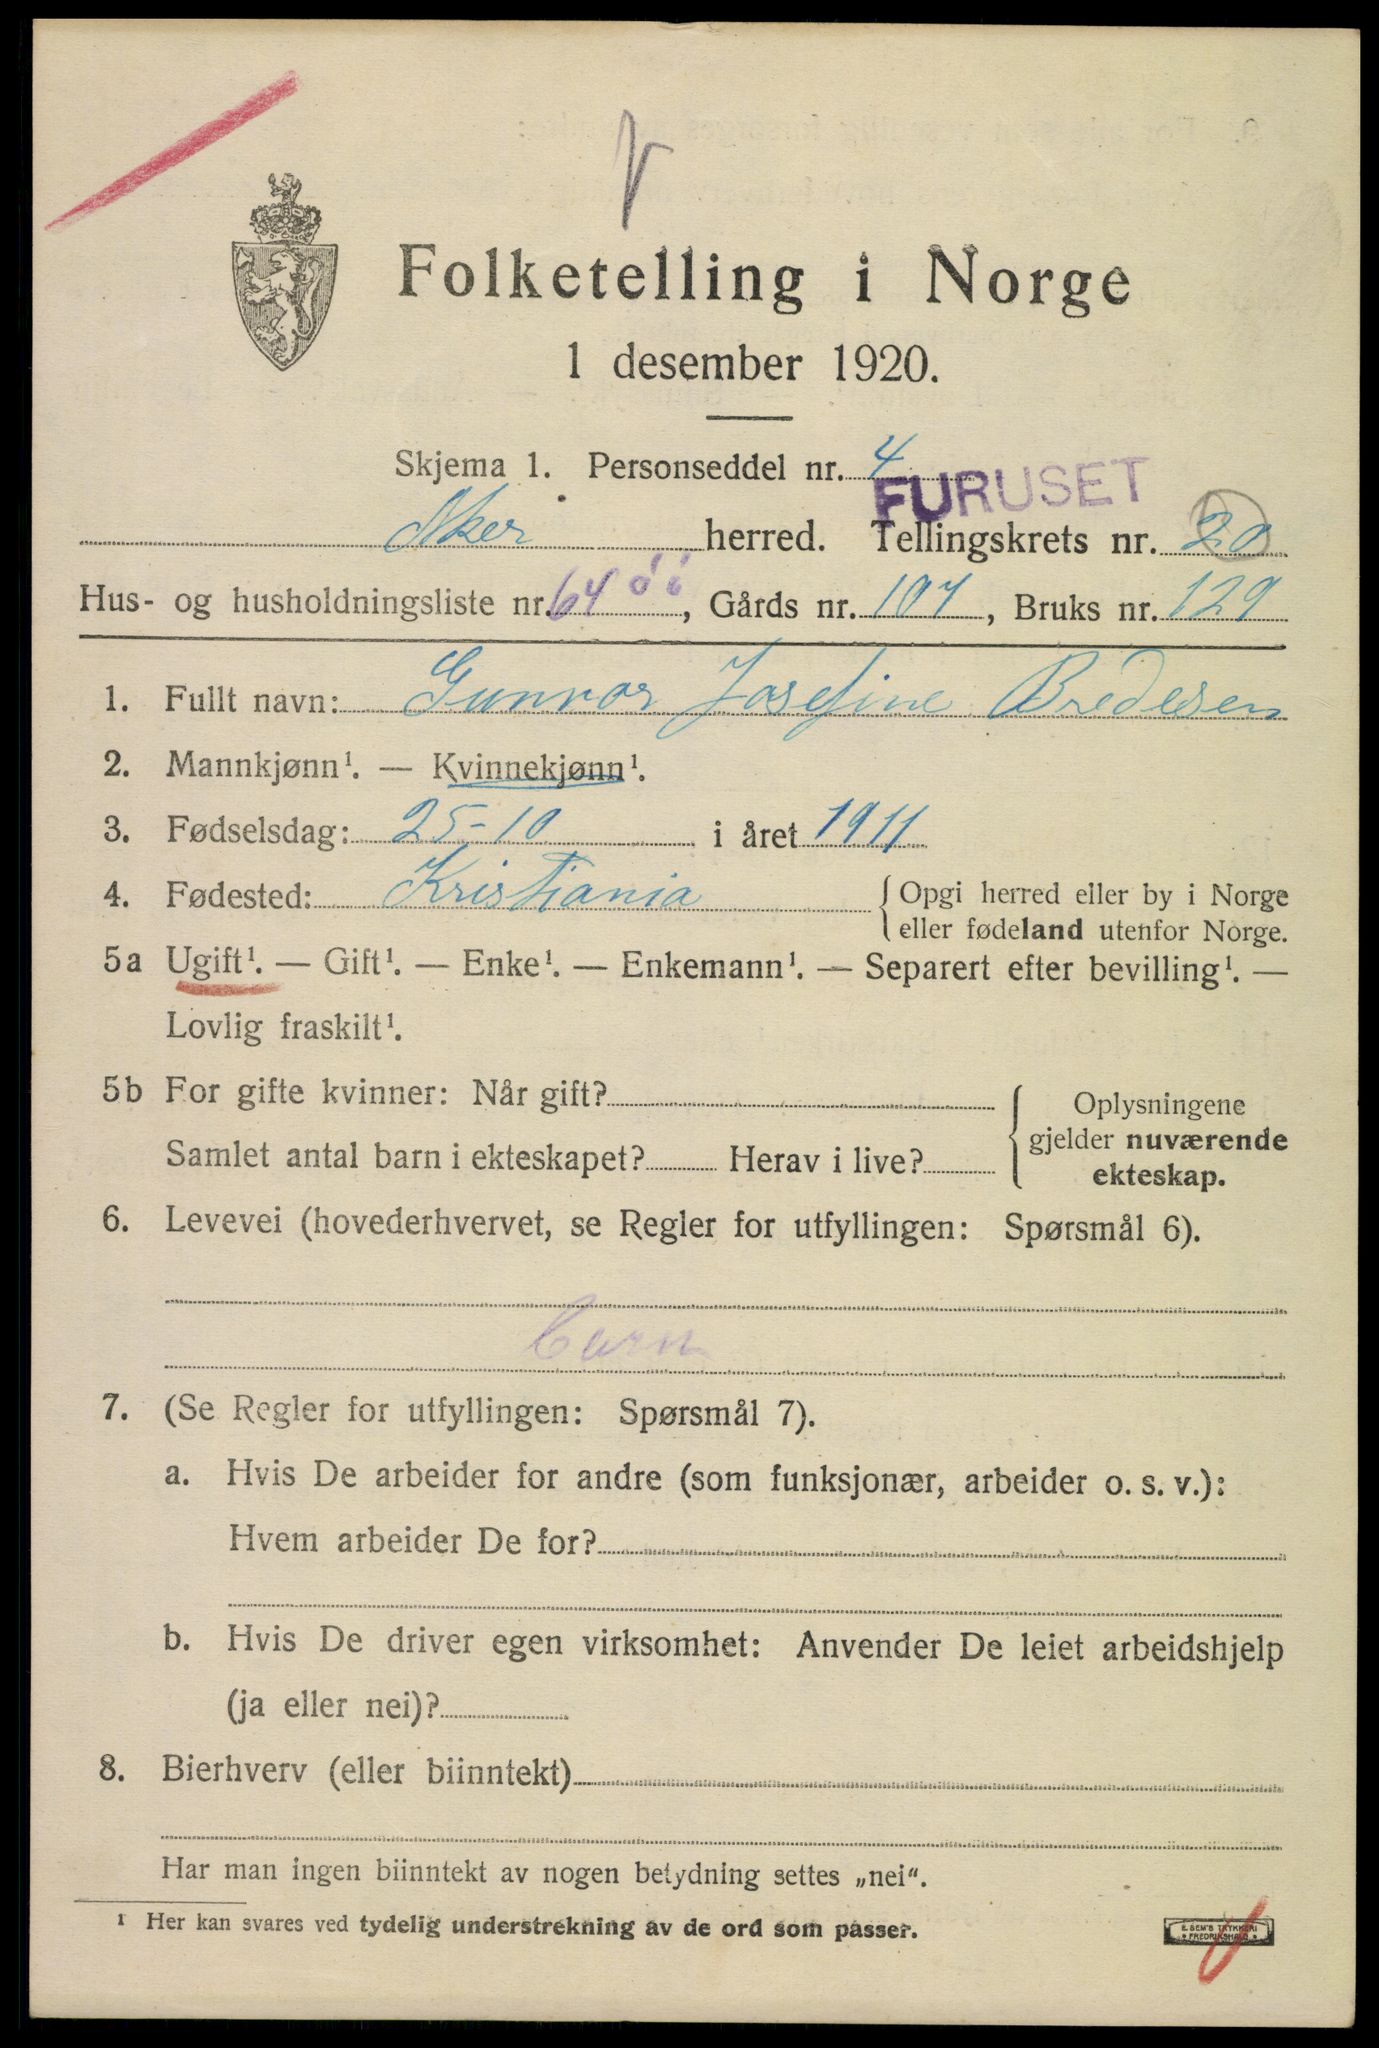 Folketelling i Norge
1 desember 1920.
Skjema 1. Personseddel nr. 4
FURUSET
Aker herred. Tellingskrets nr. 20
Hus- og husholdningsliste nr. 64, Gårds nr. 107, Bruks nr. 129
1. Fullt navn: Gunvor Josefine Bredesen
2. Mannkjønn¹. — Kvinnekjønn¹.
3. Fødselsdag: 25-10 i året 1911
4. Fødested: Kristiania {Opgi herred eller by i Norge
eller fødeland utenfor Norge.
5a Ugift¹. — Gift¹. — Enke¹. — Enkemann¹. — Separert efter bevilling¹. —
Lovlig fraskilt¹.
5b For gifte kvinner: Når gift?
Samlet antal barn i ekteskapet? Herav i live?
{Oplysningene
gjelder nuværende
ekteskap.
6. Levevei (hovederhvervet, se Regler for utfyllingen: Spørsmål 6).
barn
7. (Se Regler for utfyllingen: Spørsmål 7).
a. Hvis De arbeider for andre (som funksjonær, arbeider o. s. v.):
Hvem arbeider De for?
b. Hvis De driver egen virksomhet: Anvender De leiet arbeidshjelp
(ja eller nei)?
8. Bierhverv (eller biinntekt)
Har man ingen biinntekt av nogen betydning settes „nei“.
¹ Her kan svares ved tydelig understrekning av de ord som passer.
E. SEM'S TRYKKERI
FREDRIKSHALD